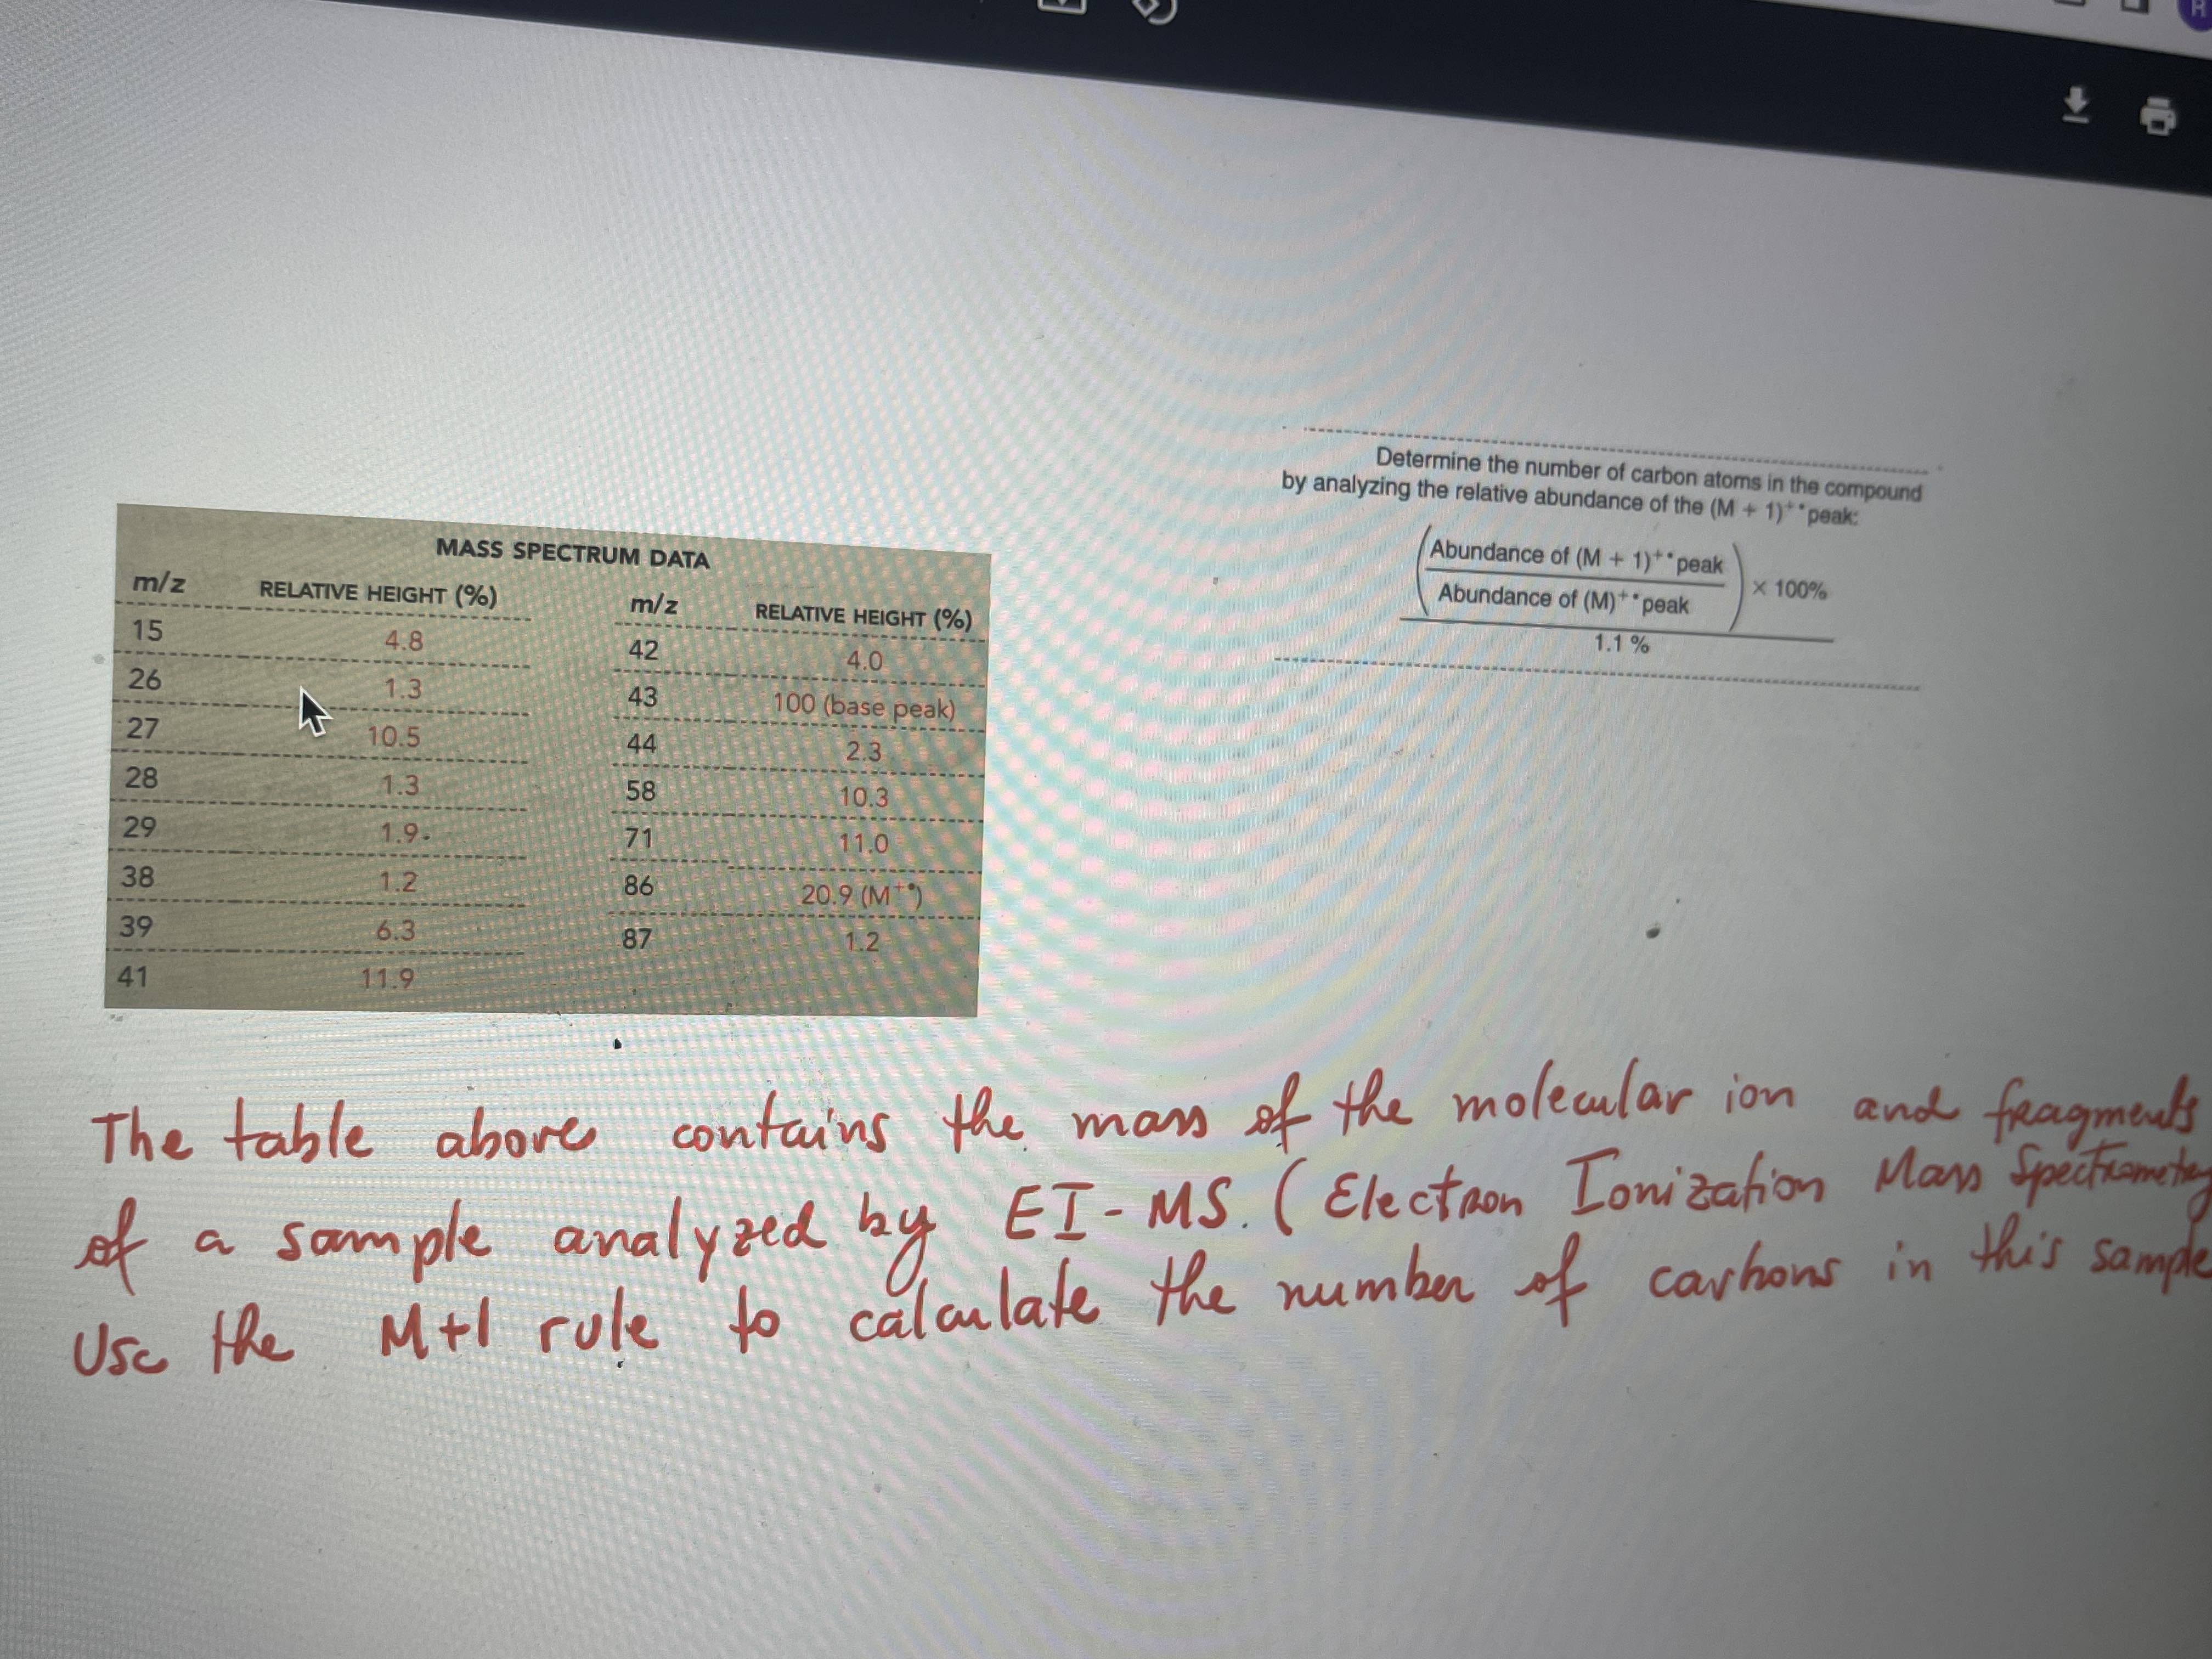 R
Determine the number of carbon atoms in the compound
by analyzing the relative abundance of the (M + 1)⁺• peak:
(Abundance of (M + 1)⁺• peak
Abundance of (M)⁺• peak) × 100%
1.1 %
MASS SPECTRUM DATA
m/z RELATIVE HEIGHT (%) m/z RELATIVE HEIGHT (%)
15 4.8 42 4.0
26 1.3 43 100 (base peak)
27 10.5 44 2.3
28 1.3 58 10.3
29 1.9 71 11.0
38 1.2 86 20.9 (M⁺•)
39 6.3 87 1.2
41 11.9
The table above contains the mass of the molecular ion and fragments
of a sample analyzed by EI-MS. (Electron Ionization Mass Spectrometry
Use the M+1 rule to calculate the number of carbons in this sample